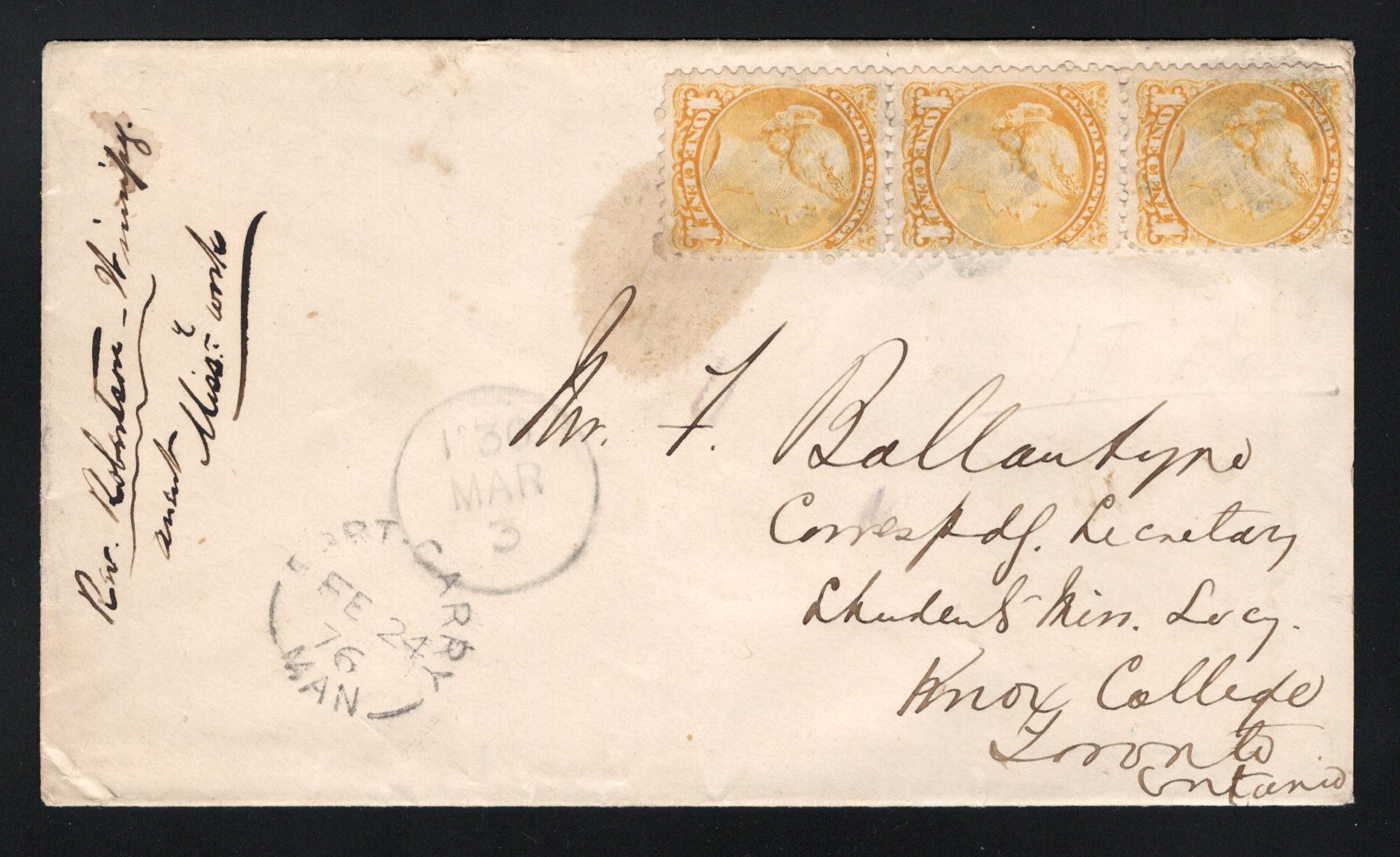 CANADA POSTAGE
1 ONE CENT 1
CANADA POSTAGE
1 ONE CENT 1
CANADA POSTAGE
1 ONE CENT 1
Rev. Robertson - Winnipg.
anent
Miss.y work
Mr. F. Ballantyne
Correspdg. Secretary
Students Miss. Socy.
Knox College
Toronto
Ontario
MAR
3
FORT-GARRY
FE 24
76
MAN